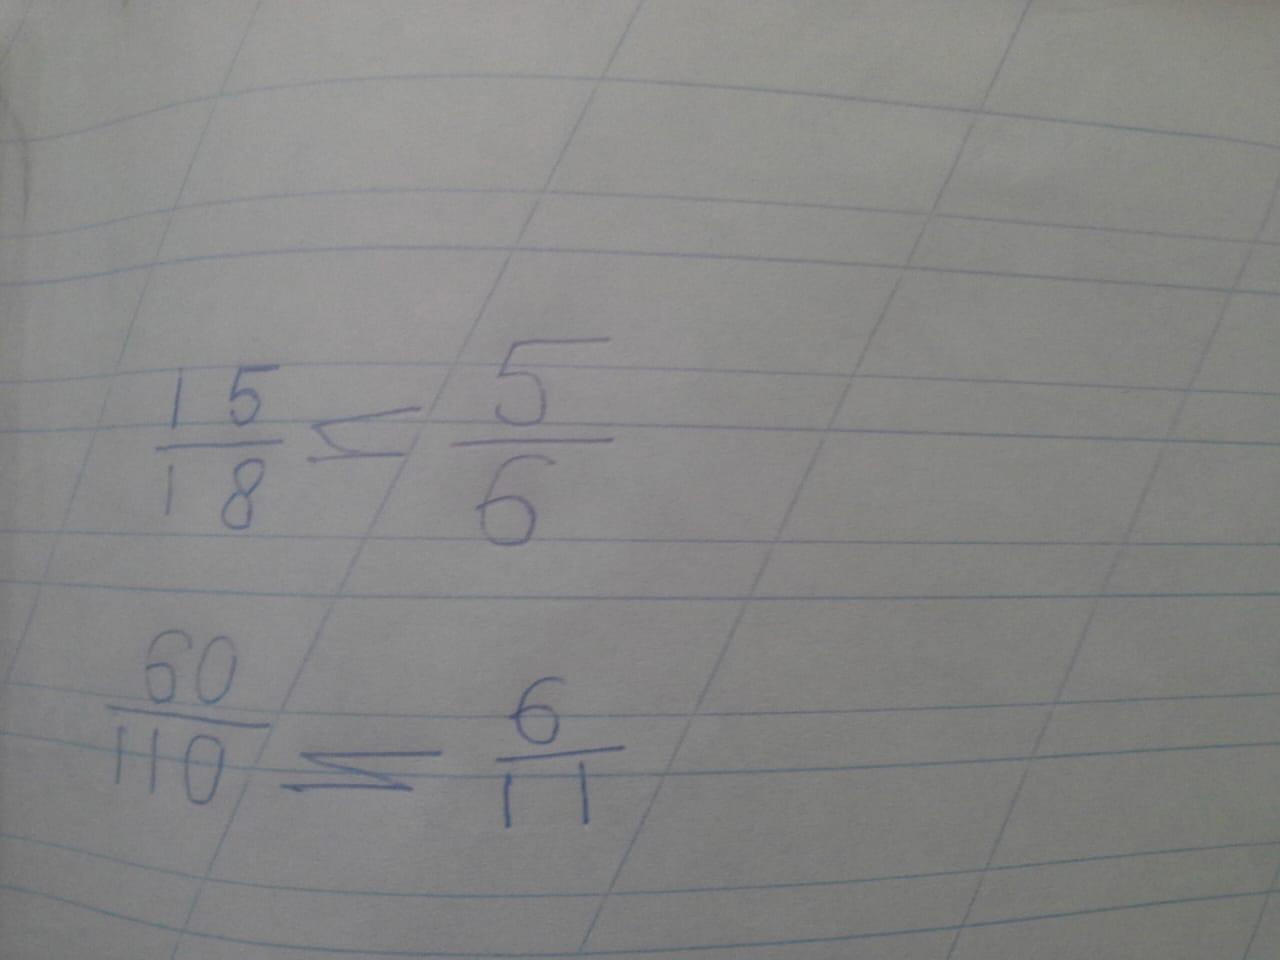 15/18 ≤ 5/6
60/110 ≤ 6/11